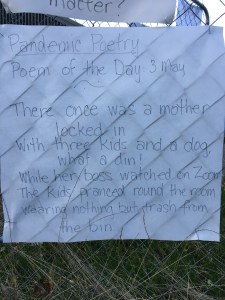 matter?
Pandemic Poetry
Poem of the Day: 3 May
There once was a mother
locked in
With three kids and a dog,
what a din!
While her boss watched on Zoom
The kids pranced round the room
wearing nothing but trash from
the bin